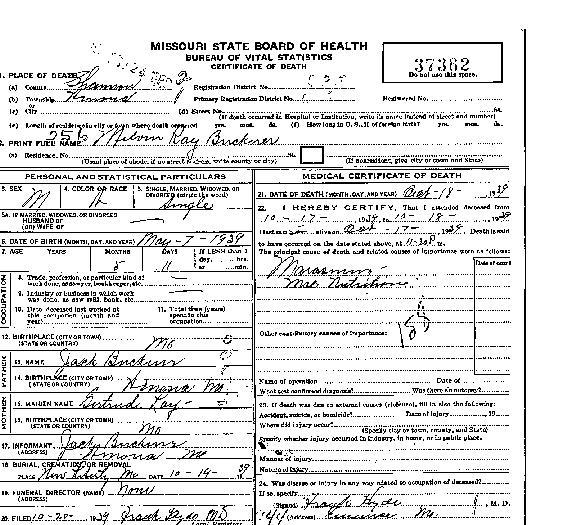 MISSOURI STATE BOARD OF HEALTH
BUREAU OF VITAL STATISTICS
CERTIFICATE OF DEATH
37362
Do not use this space.
1. PLACE OF DEATH
(a) County Shannon Registration District No.
(b) Township Primary Registration District No. Registered No.
or
(c) City (d) Street No. St.
(If death occurred in Hospital or Institution, write its name instead of street and number)
(e) Length of residence in city or town where death occurred yrs. mos. ds. (f) How long in U. S., if of foreign birth? yrs. mos. ds.
2. PRINT FULL NAME Melvin Ray Buckner
(a) Residence, No. St.
(Usual place of abode, if no street address, write county or city) (If nonresident, give city or town and State)
PERSONAL AND STATISTICAL PARTICULARS
3. SEX M
4. COLOR OR RACE W
5. SINGLE, MARRIED, WIDOWED, OR DIVORCED (write the word) Single
5A. IF MARRIED, WIDOWED, OR DIVORCED
HUSBAND OF
(or) WIFE OF
6. DATE OF BIRTH (MONTH, DAY, AND YEAR) May-7-1939
7. AGE YEARS MONTHS DAYS If LESS than 1 day, hrs. or min.
5 11
OCCUPATION
8. Trade, profession, or particular kind of work done, bookkeeper, etc.
9. Industry or business in which work was done, as saw mill, bank, etc.
10. Date deceased last worked at this occupation (month and year)
11. Total time (years) spent in this occupation
12. BIRTHPLACE (CITY OR TOWN) Mo
(STATE OR COUNTRY)
FATHER
13. NAME Jack Buckner
14. BIRTHPLACE (CITY OR TOWN) Mo.
(STATE OR COUNTRY)
MOTHER
15. MAIDEN NAME Gertrud Kay
16. BIRTHPLACE (CITY OR TOWN) Mo
(STATE OR COUNTRY)
17. INFORMANT Jack Buckner
(ADDRESS) Mo
18. BURIAL, CREMATION, OR REMOVAL
PLACE New Liberty Mo. DATE 10-19- 39
19. FUNERAL DIRECTOR (NAME) None
(ADDRESS)
20. FILED 10-20- 1939 Frank Hyde MD
MEDICAL CERTIFICATE OF DEATH
21. DATE OF DEATH (MONTH, DAY, AND YEAR) Oct-18- 1939
22. I HEREBY CERTIFY, That I attended deceased from
10-17- 1939, to 10-18- 1939
I last saw alive on Oct-17- 1939. Death is said
to have occurred on the date stated above, at m.
The principal cause of death and related causes of importance were as follows:
Date of onset
Marasmus
Mal Nutrition
Other contributory causes of importance:
Name of operation Date of
What test confirmed diagnosis? Was there an autopsy?
23. If death was due to external causes (violence), fill in also the following:
Accident, suicide, or homicide? Date of injury 19
Where did injury occur?
(Specify city or town, county, and State)
Specify whether injury occurred in industry, in home, or in public place.
Manner of injury
Nature of injury
24. Was disease or injury in any way related to occupation of deceased?
If so, specify
(Signed) Frank Hyde, M. D.
(Address) Mo.